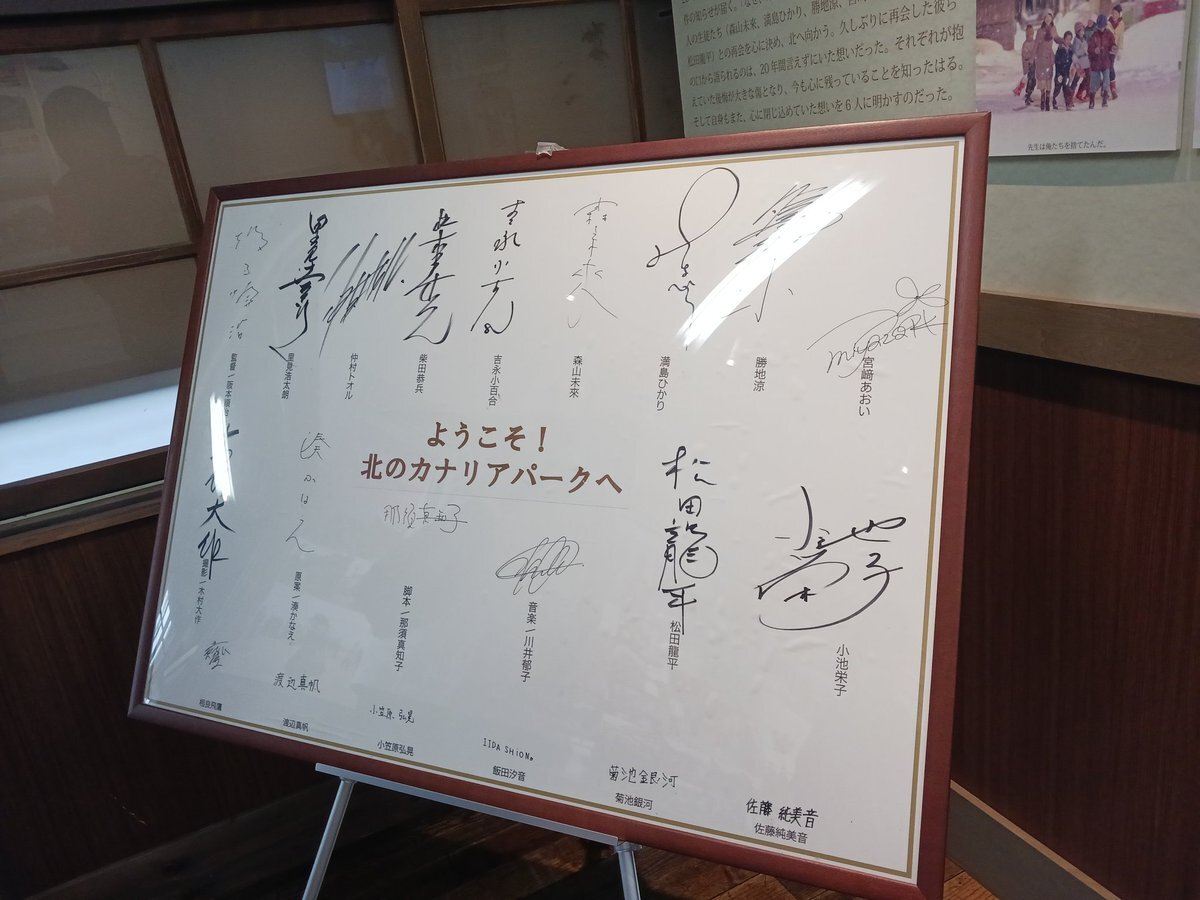 件の知らせが届く。「なぜ
人の生徒たち（森山未來、満島ひかり、勝地涼、
松田龍平）との再会を心に決め、北へ向かう。久しぶりに再会した彼ら
の口から語られるのは、20年間言えずにいた想いだった。それぞれが抱
えていた後悔が大きな傷となり、今も心に残っていることを知ったはる。
そして自身もまた、心に閉じ込めていた想いを6人に明かすのだった。
先生は俺たちを捨てたんだ。
吉永小百合
miyazaki
宮﨑あおい
勝地涼
満島ひかり
森山未來
吉永小百合
柴田恭兵
仲村トオル
里見浩太朗
監督｜阪本順治
ようこそ！
北のカナリアパークへ
松田龍平
小池栄子
湊かなえ
那須真知子
大作
小池栄子
松田龍平
音楽｜川井郁子
脚本｜那須真知子
原案｜湊かなえ
撮影｜木村大作
渡辺真帆
小笠原弘晃
IIDA SHION。
菊池銀河
佐藤純美音
相良飛鷹
渡辺真帆
小笠原弘晃
飯田汐音
菊池銀河
佐藤純美音